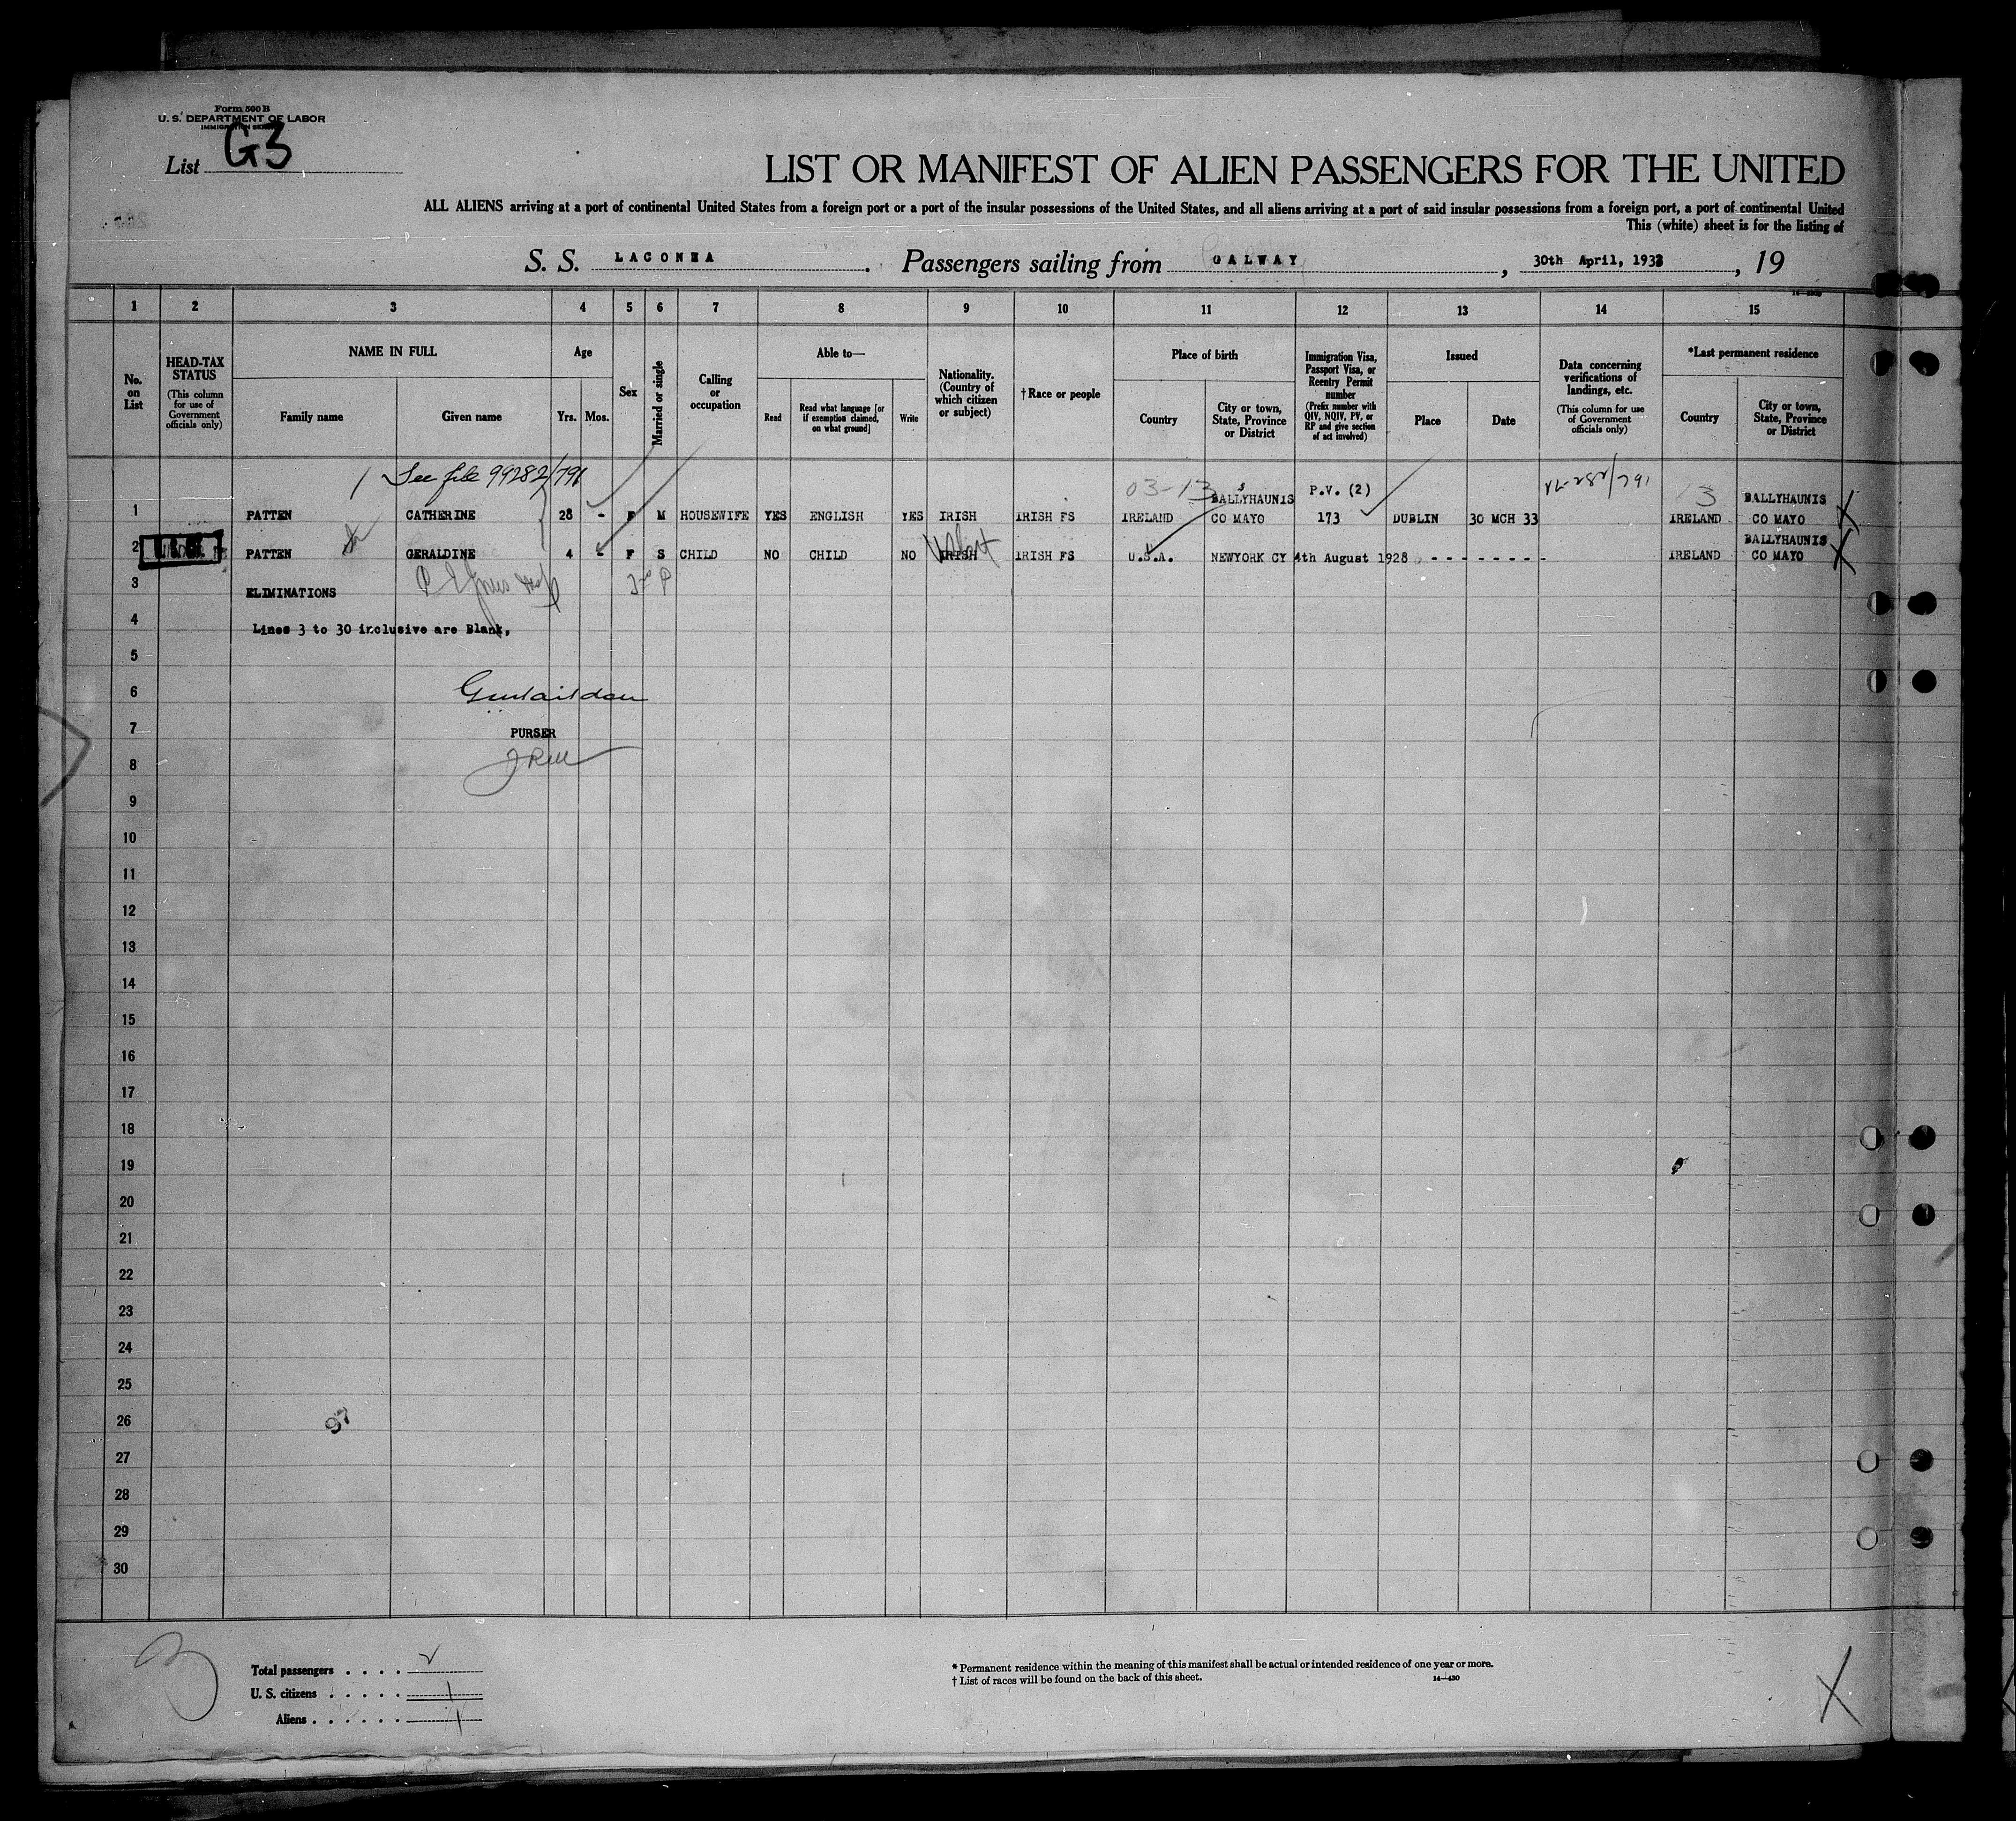 Form 500 B
U. S. DEPARTMENT OF LABOR
IMMIGRATION SERVICE
List G3
LIST OR MANIFEST OF ALIEN PASSENGERS FOR THE UNITED
ALL ALIENS arriving at a port of continental United States from a foreign port or a port of the insular possessions of the United States, and all aliens arriving at a port of said insular possessions from a foreign port, a port of continental United
This (white) sheet is for the listing of
S. S. LACONIA. Passengers sailing from GALWAY, 30th April, 1933, 19
1 2 3 4 5 6 7 8 9 10 11 12 13 14 15
No. on List
HEAD-TAX STATUS (This column for use of Government officials only)
NAME IN FULL
Family name Given name
Age
Yrs. Mos.
Sex
Married or single
Calling or occupation
Able to—
Read Read what language [or if exemption claimed, on what ground] Write
Nationality. (Country of which citizen or subject)
† Race or people
Place of birth
Country City or town, State, Province or District
Immigration Visa, Passport Visa, or Reentry Permit number (Prefix number with QIV, NQIV, PV, or RP and give section of act involved)
Issued
Place Date
Data concerning verifications of landings, etc. (This column for use of Government officials only)
*Last permanent residence
Country City or town, State, Province or District
See file 99282/791
03-13 BALLYHAUNIS P.V. (2) 3 BALLYHAUNIS
1 PATTEN CATHERINE 28 - F M HOUSEWIFE YES ENGLISH YES IRISH IRISH FS IRELAND CO MAYO 173 DUBLIN 30 MCH 33 IRELAND CO MAYO
BALLYHAUNIS
2 PATTEN GERALDINE 4 - F S CHILD NO CHILD NO IRISH IRISH FS U.S.A. NEWYORK CY 4th August 1928 - - - - - - - IRELAND CO MAYO
3 ELIMINATIONS
4 Lines 3 to 30 inclusive are Blank,
5
6
7 PURSER
8
9
10
11
12
13
14
15
16
17
18
19
20
21
22
23
24
25
26
97
27
28
29
30
Total passengers . . . .
U. S. citizens . . . . . 1
Aliens . . . . . . 1
* Permanent residence within the meaning of this manifest shall be actual or intended residence of one year or more.
† List of races will be found on the back of this sheet. 14—430